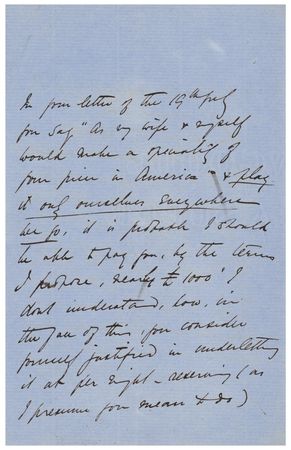 In your letter of the 19th July
you say "As my wife & myself
would make a speciality of
your piece in America & play
it only ourselves everywhere
we go, it is probable I should
be able to pay you, by the terms
I propose, nearly £1000" I
dont understand, how, in
the face of this, you consider
yourself justified in underletting
it at per night - reserving (as
I presume you mean to do)